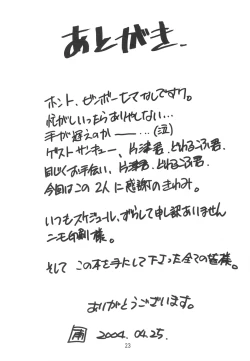 あとがき。
ホント、ビンボーヒマなしですワ。
忙がしいったらありゃしない…
手が遅えのか――…(泣)
ゲストサンキュー、片津君、とれるごふ君。
同じくお手伝い、片津君、とれるごふ君。
今回はこの2人に感謝のきわみ。
いつもスケジュール、ずらして申し訳ありません
ニモ印刷様。
そして この本を手にして下さった全ての皆様。
ありがとうございます。
2004.04.25.
23